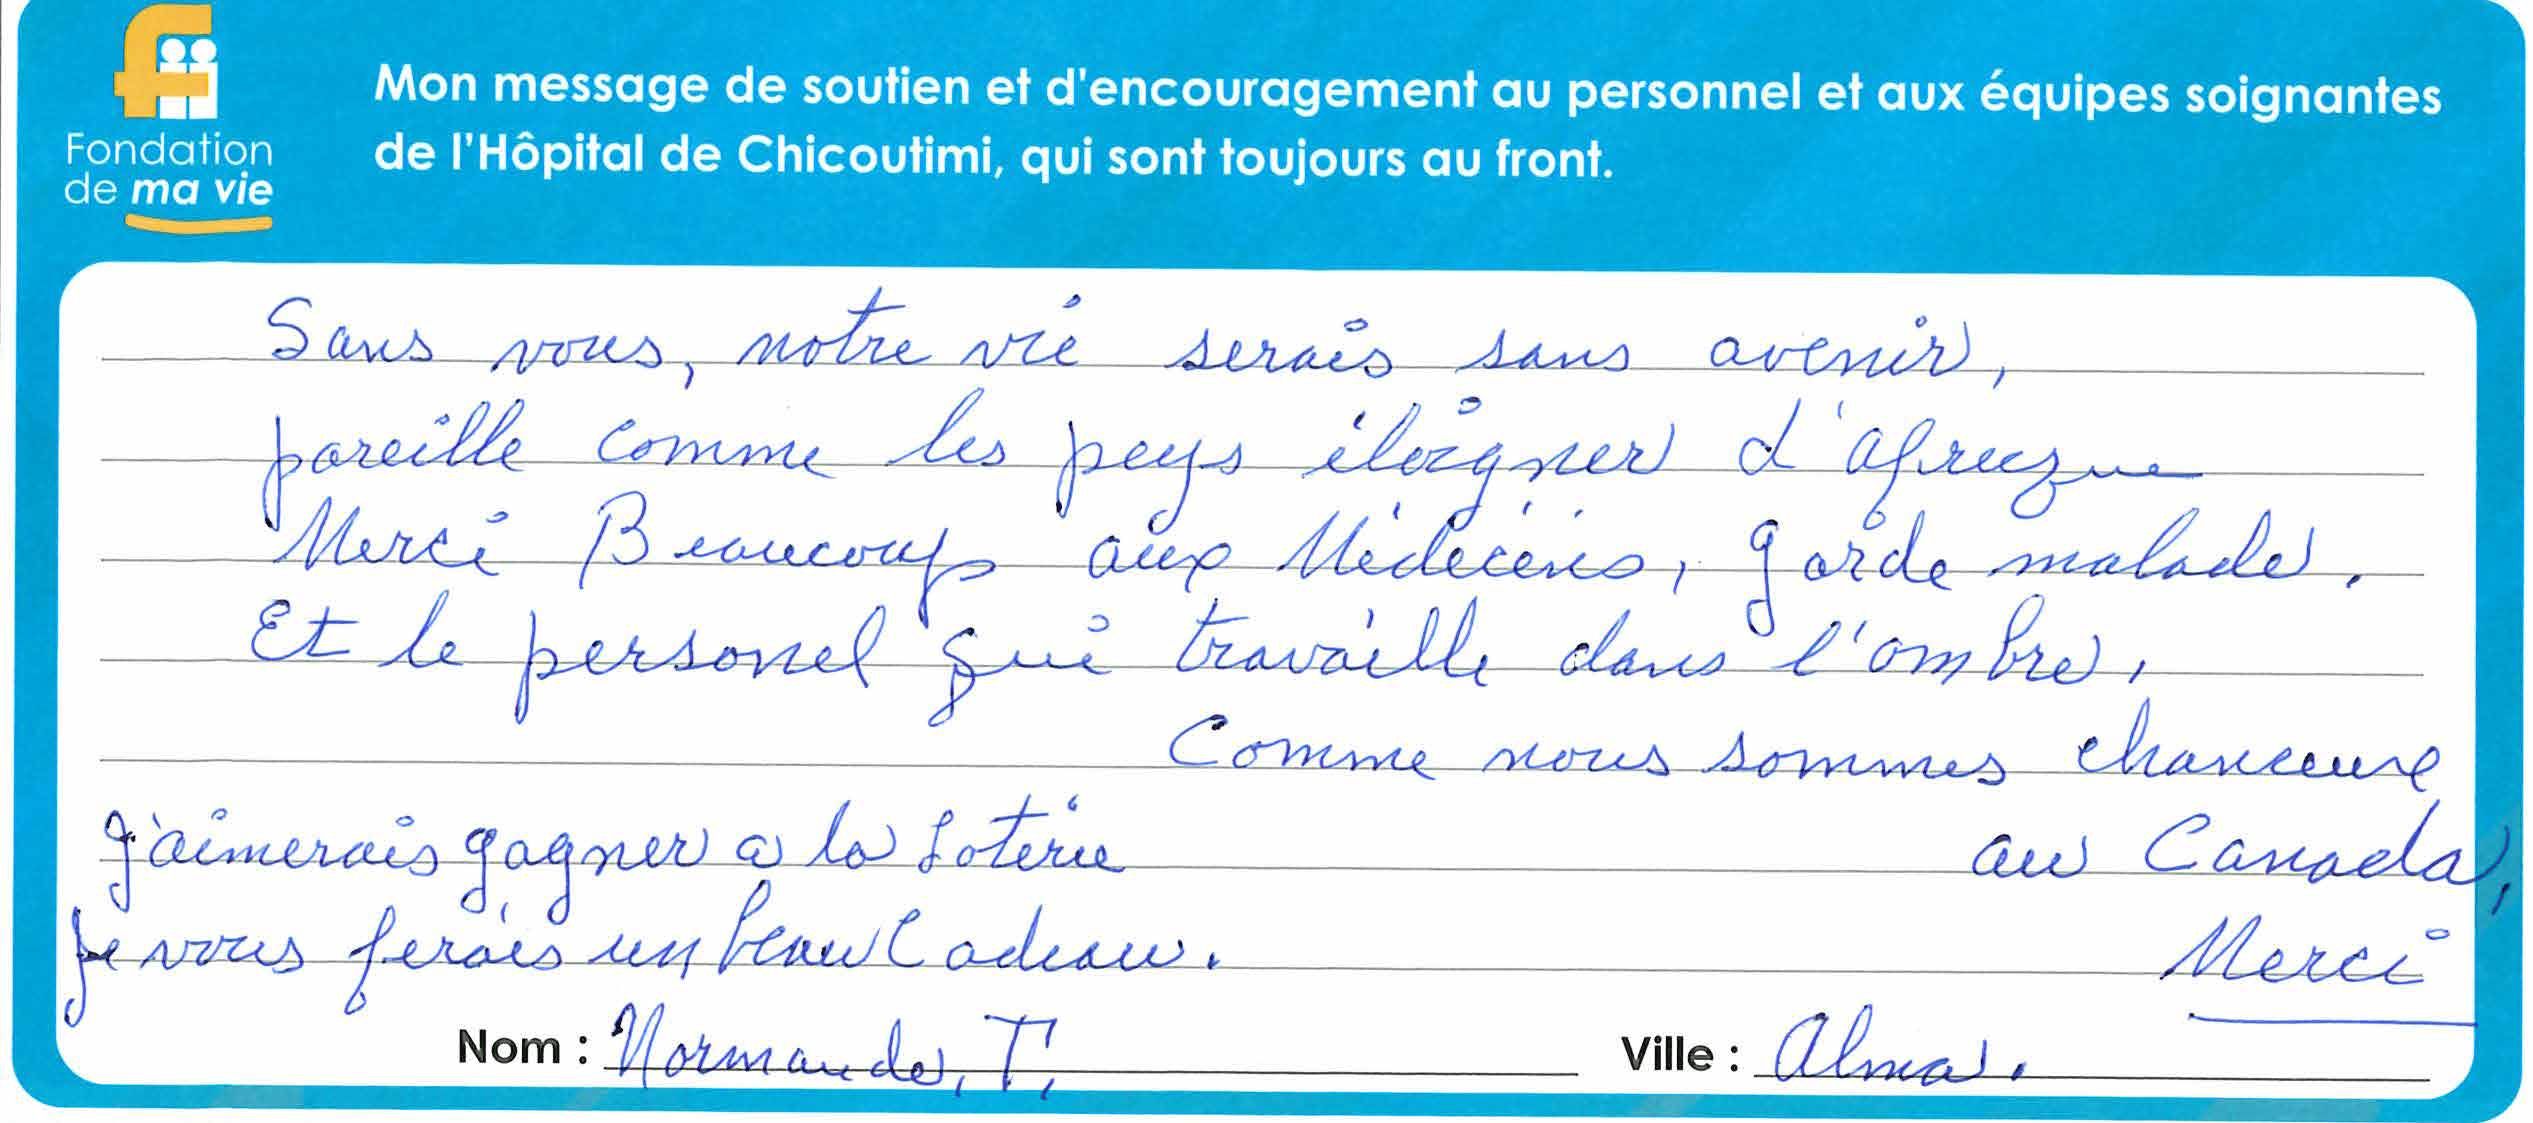 Fondation
de ma vie
Mon message de soutien et d'encouragement au personnel et aux équipes soignantes
de l'Hôpital de Chicoutimi, qui sont toujours au front.
Sans vous, notre vie serais sans avenir,
pareille comme les peys éloigner d'afrique
Merci Beaucoup aux Médecins, garde malade.
Et le personel qui travaille dans l'ombre,
Comme nous sommes chanceuse
j'aimerais gagner a la Loterie au Canada,
je vous ferais un beau Cadeau. Merci
Nom : Normande, T. Ville : Alma.